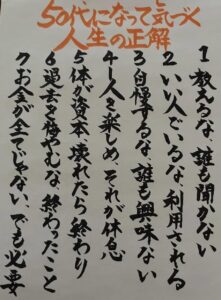 50代になって気づく
人生の正解
1 教えるな、誰も聞かない
2 いい人でいるな、利用される
3 自慢するな、誰も興味ない
4 一人を楽しめ、それが休息
5 体が資本、壊れたら終わり
6 過去を悔やむな、終わったこと
7 お金が全てじゃない、でも必要